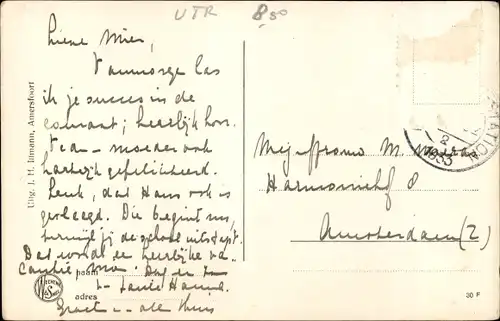 UTR 8,50
Lieve Mies,
Vanmorge las
ik je succes in de
courant; heerlijk hoor.
moeder ook
hartelijk gefeliciteerd.
Leuk, dat Hans ook is
geslaagd. Die begint nu,
terwijl jij de school uitstapt.
Dat wordt een heerlijke
Dag en
naam
tante Hanna.
adres
Groet alle thuis
Uitg. J. H. Inmann, Amersfoort
Mejuffrouw M.
Harmoniehof 8
Amsterdam (Z)
1933
30 F